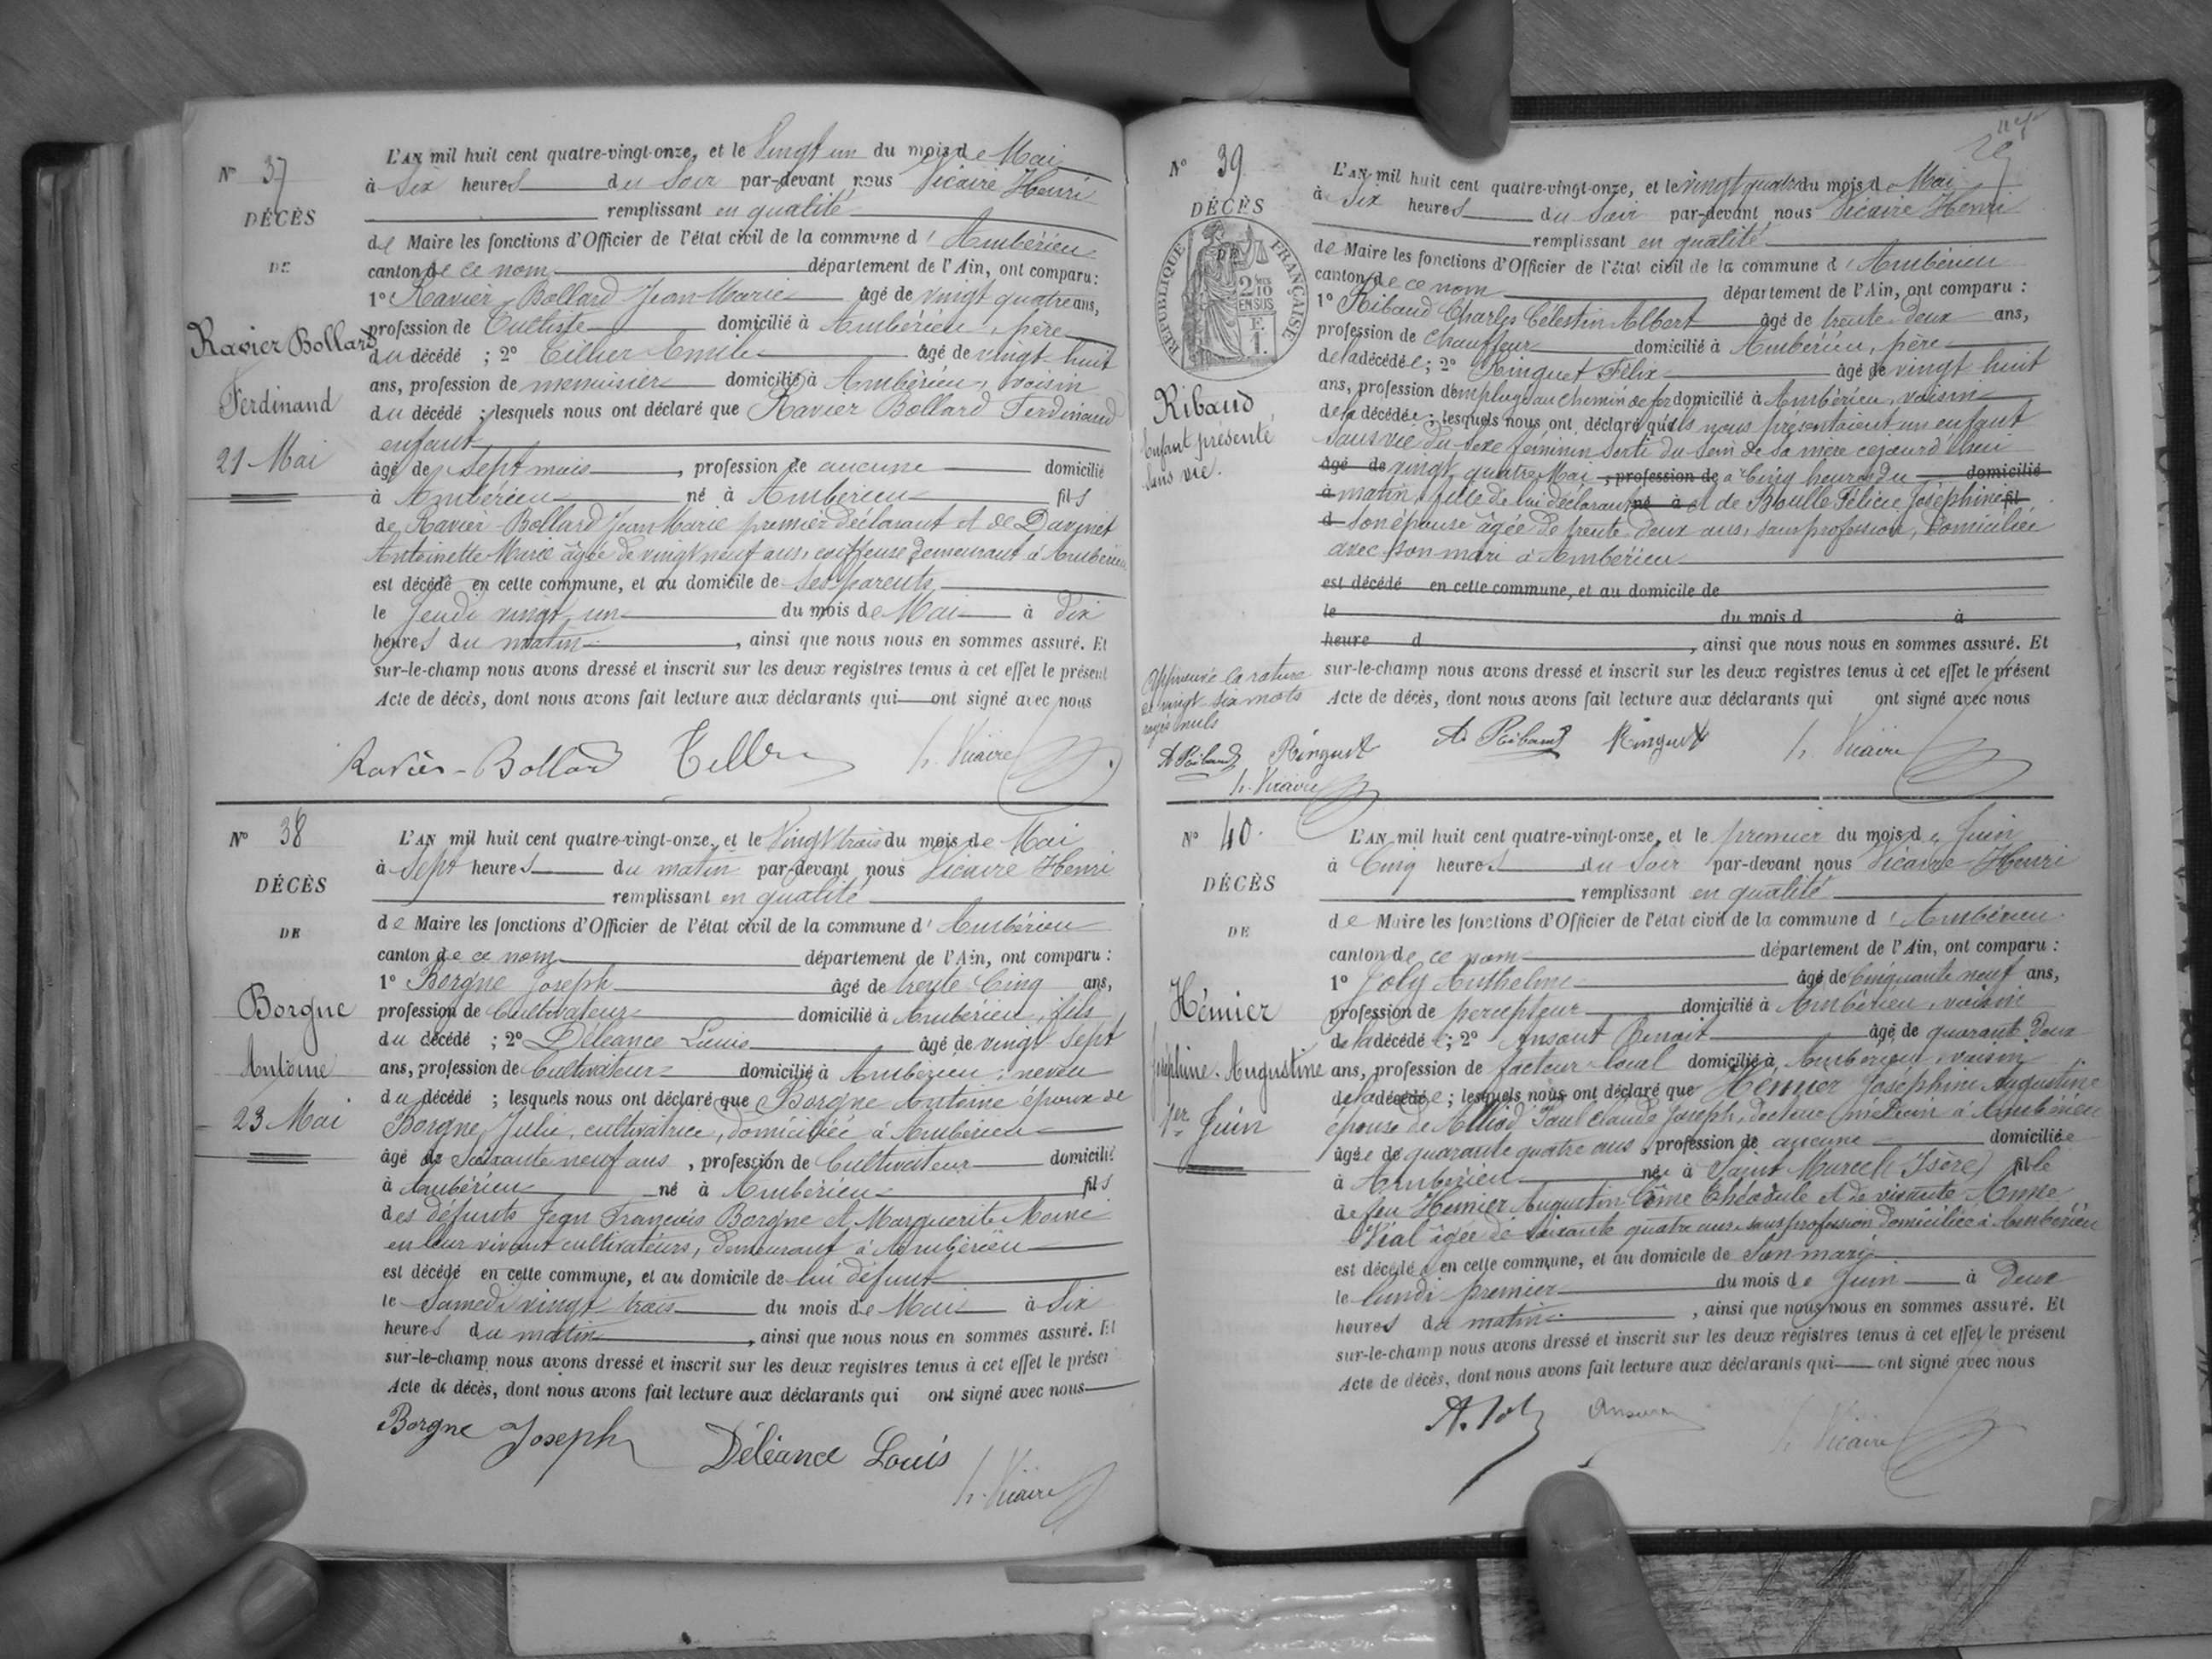 N° 37
DÉCÈS
DE
Ravier Bollard
Ferdinand
21 Mai
L'AN mil huit cent quatre-vingt-onze, et le Vingt un du mois de Mai
à Six heures du Soir par-devant nous Vicaire Henri
remplissant en qualité
de Maire les fonctions d'Officier de l'état civil de la commune d'Ambérieu
canton de ce nom département de l'Ain, ont comparu :
1° Ravier Bollard Jean Marie âgé de vingt quatre ans,
profession de Tulliste domicilié à Ambérieu, père
du décédé ; 2° Tillier Emile âgé de vingt huit
ans, profession de menuisier domicilié à Ambérieu, voisin
du décédé ; lesquels nous ont déclaré que Ravier Bollard Ferdinand
enfant
âgé de Sept mois, profession de aucune domicilié
à Ambérieu né à Ambérieu fils
de Ravier Bollard Jean Marie premier déclarant et de
Antoinette Marie âgée de vingt neuf ans, coiffeuse demeurant à Ambérieu
est décédé en cette commune, et au domicile de Ses parents
le Jeudi vingt un du mois de Mai à dix
heures du matin, ainsi que nous nous en sommes assuré. Et
sur-le-champ nous avons dressé et inscrit sur les deux registres tenus à cet effet le présent
Acte de décès, dont nous avons fait lecture aux déclarants qui ont signé avec nous
Ravier-Bollard h. Vicaire
N° 38
DÉCÈS
DE
Borgne
Antoine
23 Mai
L'AN mil huit cent quatre-vingt-onze, et le Vingt trois du mois de Mai
à Sept heures du matin par-devant nous Vicaire Henri
remplissant en qualité
de Maire les fonctions d'Officier de l'état civil de la commune d'Ambérieu
canton de ce nom département de l'Ain, ont comparu :
1° Borgne Joseph âgé de trente Cinq ans,
profession de Cultivateur domicilié à Ambérieu, fils
du décédé ; 2° Déléance Louis âgé de vingt sept
ans, profession de Cultivateur domicilié à Ambérieu, neveu
du décédé ; lesquels nous ont déclaré que Borgne Antoine époux de
Borgne Julie, cultivatrice, domiciliée à Ambérieu
âgé de Soixante neuf ans, profession de Cultivateur domicilié
à Ambérieu né à Ambérieu fils
des défunts Jean François Borgne et Marguerite
en leur vivant cultivateurs, demeurant à Ambérieu
est décédé en cette commune, et au domicile de lui défunt
le Samedi vingt trois du mois de Mai à Six
heures du matin, ainsi que nous nous en sommes assuré. Et
sur-le-champ nous avons dressé et inscrit sur les deux registres tenus à cet effet le présent
Acte de décès, dont nous avons fait lecture aux déclarants qui ont signé avec nous
Borgne Joseph Déléance Louis h. Vicaire
N° 39
DÉCÈS
DE
RÉPUBLIQUE FRANÇAISE
2/10 EN SUS
Ribaud
Enfant présenté
Sans vie.
L'AN mil huit cent quatre-vingt-onze, et le vingt quatre du mois de Mai
à Six heures du Soir par-devant nous Vicaire Henri
remplissant en qualité
de Maire les fonctions d'Officier de l'état civil de la commune d'Ambérieu
canton de ce nom département de l'Ain, ont comparu :
1° Ribaud Charles Célestin Albert âgé de trente deux ans,
profession de Chauffeur domicilié à Ambérieu, père
de la décédée ; 2° Ringuet Félix âgé de vingt huit
ans, profession d'employé au chemin de fer domicilié à Ambérieu, voisin
de la décédée ; lesquels nous ont déclaré qu'ils nous présentaient un enfant
sans vie du sexe féminin sorti du sein de sa mère cejourd'hui
âgé de vingt quatre Mai, profession de à Cinq heures du domicilié
à matin, fille de lui déclarant né à et de Boulle Félicie Joséphine fil
d son épouse âgée de trente deux ans, sans profession, domiciliée
avec son mari à Ambérieu
est décédé en cette commune, et au domicile de
le du mois d à
heure d , ainsi que nous nous en sommes assuré. Et
sur-le-champ nous avons dressé et inscrit sur les deux registres tenus à cet effet le présent
Acte de décès, dont nous avons fait lecture aux déclarants qui ont signé avec nous
Approuvé la rature
de vingt six mots
rayés nuls
A Ribaud Ringuet A. Ribaud Ringuet h. Vicaire
h. Vicaire
N° 40.
DÉCÈS
DE
Hémier
Joséphine. Augustine
1er Juin
L'AN mil huit cent quatre-vingt-onze, et le premier du mois de Juin
à Cinq heures du Soir par-devant nous Vicaire Henri
remplissant en qualité
de Maire les fonctions d'Officier de l'état civil de la commune d'Ambérieu
canton de ce nom département de l'Ain, ont comparu :
1° Joly Anthelme âgé de Cinquante neuf ans,
profession de percepteur domicilié à Ambérieu, voisin
de la décédée ; 2° Ansout Benoit âgé de quarante deux
ans, profession de facteur local domicilié à Ambérieu, voisin
de la décédée ; lesquels nous ont déclaré que Hémier Joséphine Augustine
épouse de Alliod Paul Claude Joseph, docteur médecin à Ambérieu
âgée de quarante quatre ans, profession de aucune domiciliée
à Ambérieu née à Saint (Isère) fille
de feu Hémier Augustin Côme Théodule et de vivante Anne
Vial âgée de soixante quatre ans sans profession domiciliée à Ambérieu
est décédée en cette commune, et au domicile de Son mari
le lundi premier du mois de Juin à Deux
heures du matin, ainsi que nous nous en sommes assuré. Et
sur-le-champ nous avons dressé et inscrit sur les deux registres tenus à cet effet le présent
Acte de décès, dont nous avons fait lecture aux déclarants qui ont signé avec nous
A. Joly h. Vicaire